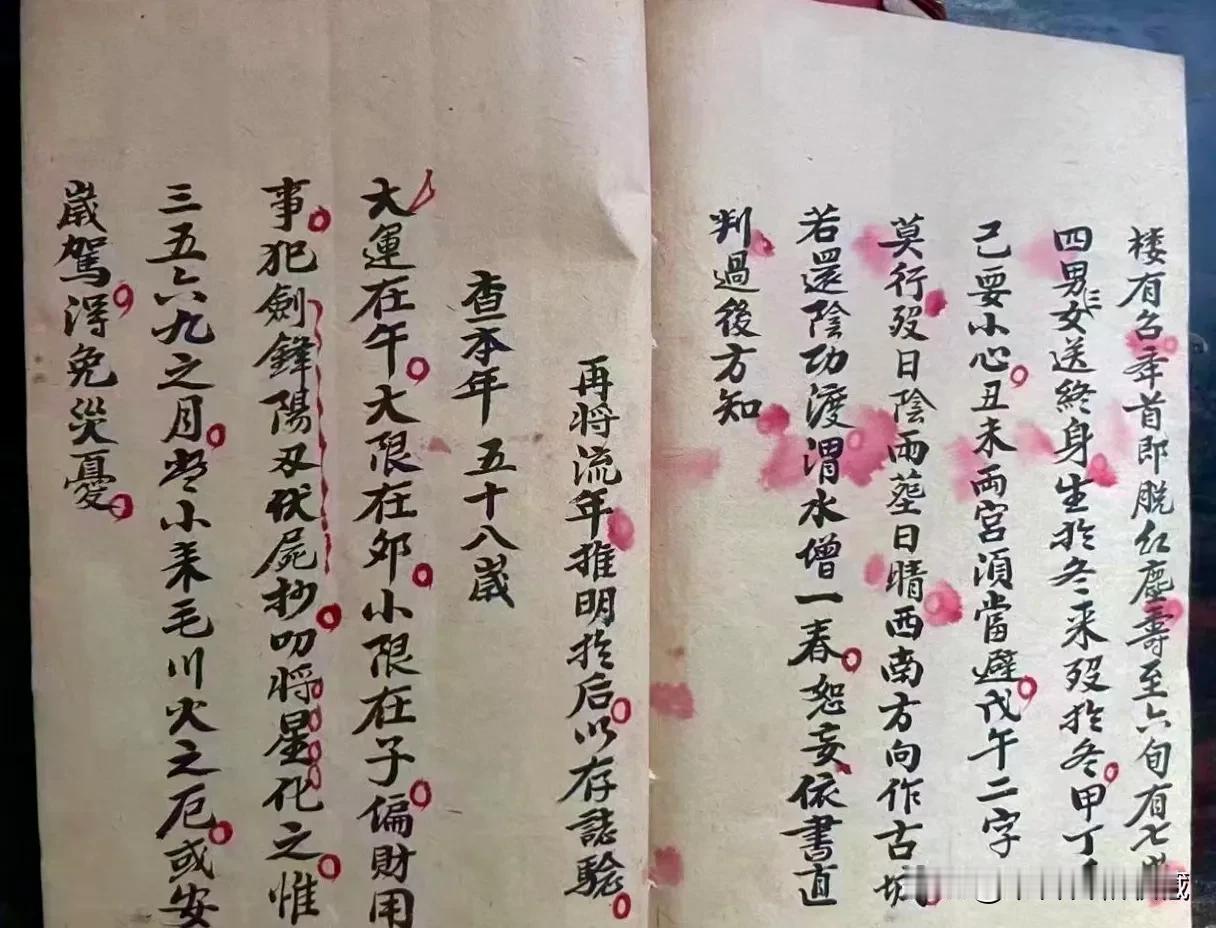 楼有名季首即脱红塵壽至六旬有七
四男女送終身生於冬来歿於冬甲丁
己要小心丑未両宮湏當避戊午二字
莫行歿日陰雨塟日晴西南方向作古坟
若還陰功渡渭水增一春恕妄依書直
判過後方知
再将流年推明於后以存誌驗
查本年五十八歲
大運在午大限在卯小限在子偏財用
事犯劍鋒陽刃伏屍抄叨将星化之惟
三五六九之月小耒毛川火之厄或安
歲駕淂免災憂